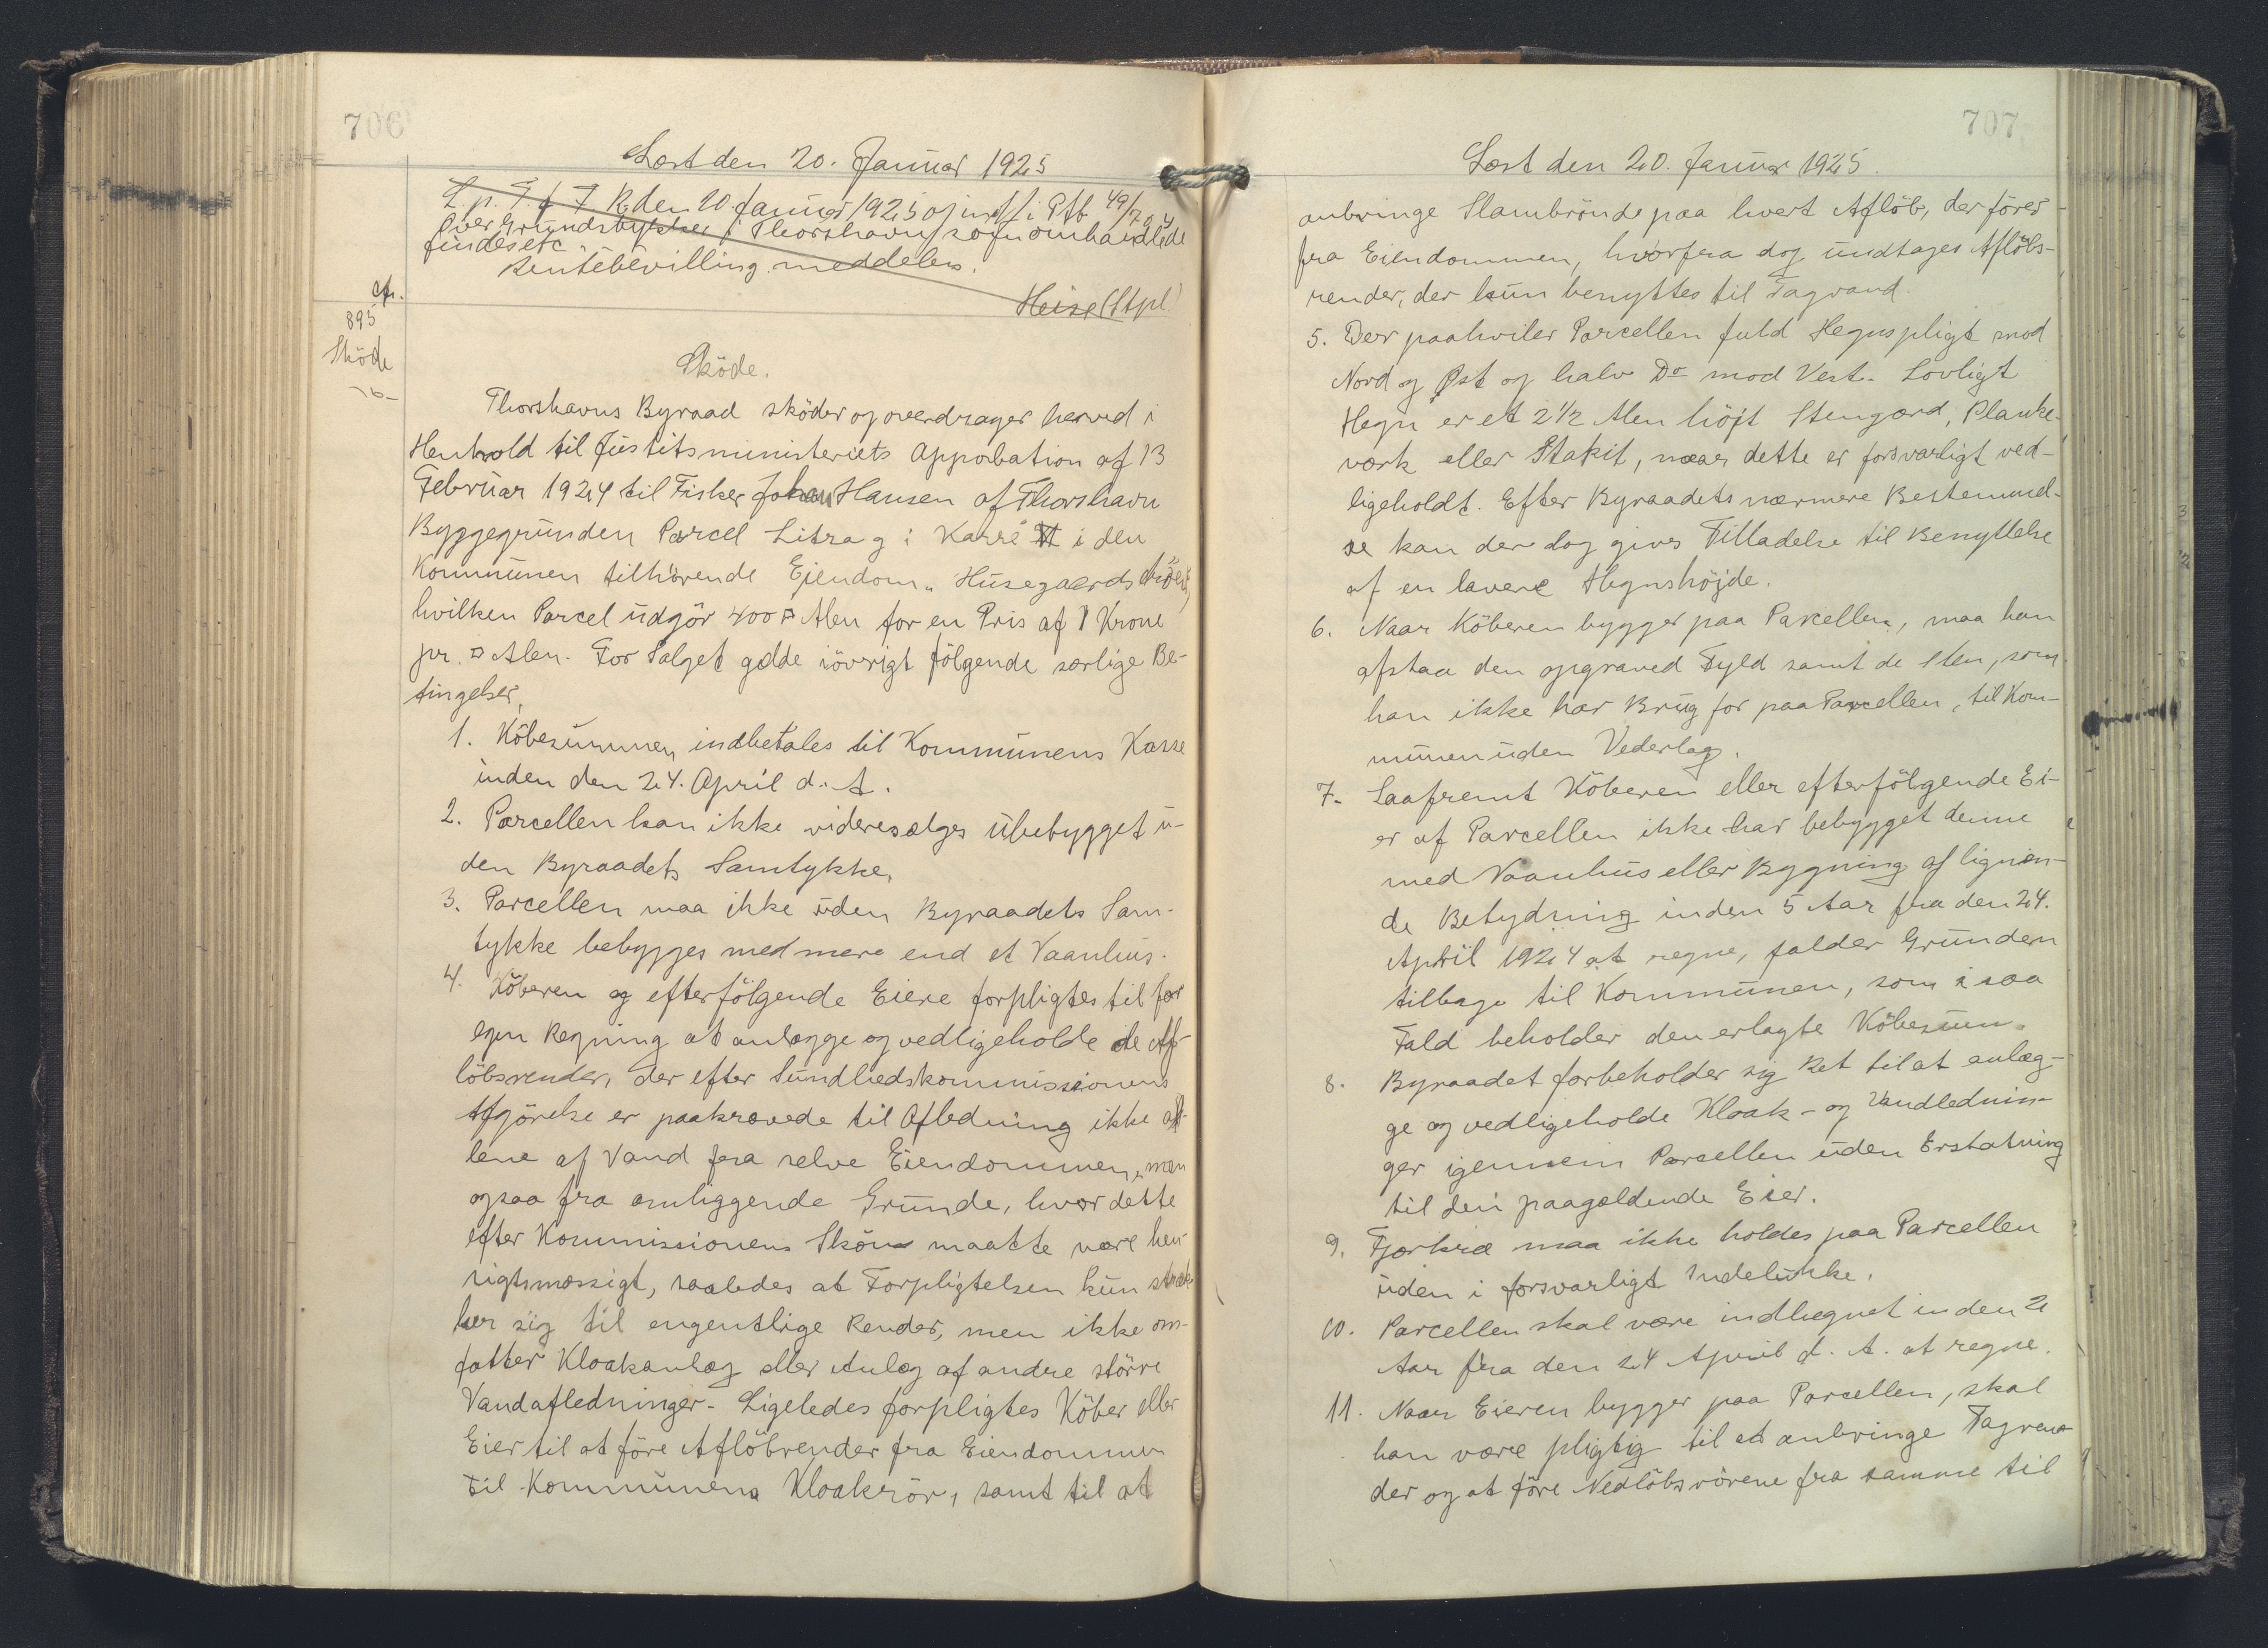 706
Læst den 20. Januar 1925
L. p. T. f. F. R. den 20. Januar 1925 og indf. i Ptb 49/704
over Grundstykker i Thorshavn, som omhandlede
findes etc
Rentebevilling meddeles.
Heise (Stpl)
cfr.
895
Sköde
Sköde.
Thorshavns Byraad sköder og overdrager herved i
Henhold til Justitsministeriets Approbation af 13
Februar 1924 til Fisker Johan Hansen af Thorshavn
Byggegrunden Parcel Litra g i Karré VI i den
Kommunen tilhörende Ejendom "Husegaards
hvilken Parcel udgör 400 □ Alen for en Pris af 1 Krone
pr. □ Alen. For Salget gælde iövrigt fölgende særlige Be-
tingelser,
1. Köbesummen indbetales til Kommunens Kasse
inden den 24. April d. A.
2. Parcellen kan ikke videresælges ubebygget u-
den Byraadets Samtykke,
3. Parcellen maa ikke uden Byraadets Sam-
tykke bebygges med mere end et Vaanhus.
4. Köberen og efterfölgende Eiere forpligtes til for
egen Regning at anlægge og vedligeholde de Af-
löbsrender, der efter Sundhedskommissionens
Afgörelse er paakrævede til Afledning ikke al-
lene af Vand fra selve Eiendommen, men
ogsaa fra omliggende Grunde, hvor dette
efter Kommissionens Skön maatte være hen-
sigtsmæssigt, saaledes at Forpligtelsen kun stræk-
ker sig til engentlige Render, men ikke om-
fatter Kloakanlæg eller Anlæg af andre större
Vandafledninger. Ligeledes forpligtes Köber eller
Eier til at före Aflöbrender fra Eiendommen
til Kommunens Kloakrör, samt til at
707
Læst den 20. Januar 1925.
anbringe Slambrönde paa hvert Aflöb, der förer
fra Eiendommen, hvorfra dog undtages Aflöbs-
render, der kun benyttes til Tagvand.
5. Der paahviler Parcellen fuld Hegnspligt mod
Nord og Øst og halv Do mod Vest. Lovligt
Hegn er et 2 1/2 Alen höjt Stengærd, Planke-
værk eller Stakit, naar dette er forsvarligt ved-
ligeholdt. Efter Byraadets nærmere Bestemmel-
se kan der dog gives Tilladelse til Benyttelse
af en lavere Hegnshöjde.
6. Naar Köberen bygger paa Parcellen, maa han
afstaa den opgraved Fyld samt de Sten, som
han ikke har Brug for paa Parcellen, til Kom-
munen uden Vederlag.
7. Saafremt Köberen eller efterfölgende Ei-
er af Parcellen ikke har bebygget denne
med Vaanhus eller Bygning af lignen-
de Betydning inden 5 Aar fra den 24.
April 1924 at regne, falder Grunden
tilbage til Kommunen, som i saa
Fald beholder den erlagte Köbesum.
8. Byraadet forbeholder sig Ret til at anlæg-
ge og vedligeholde Kloak- og Vandlednin-
ger igennem Parcellen uden Erstatning
til den paagældende Eier.
9. Fjerkræ maa ikke holdes paa Parcellen
uden i forsvarligt Indelukke.
10. Parcellen skal være indhegnet inden 2
Aar fra den 24 April d. A. at regne.
11. Naar Eieren bygger paa Parcellen, skal
han være pligtig til at anbringe Tagren-
der og at före Nedlöbsrörene fra samme til